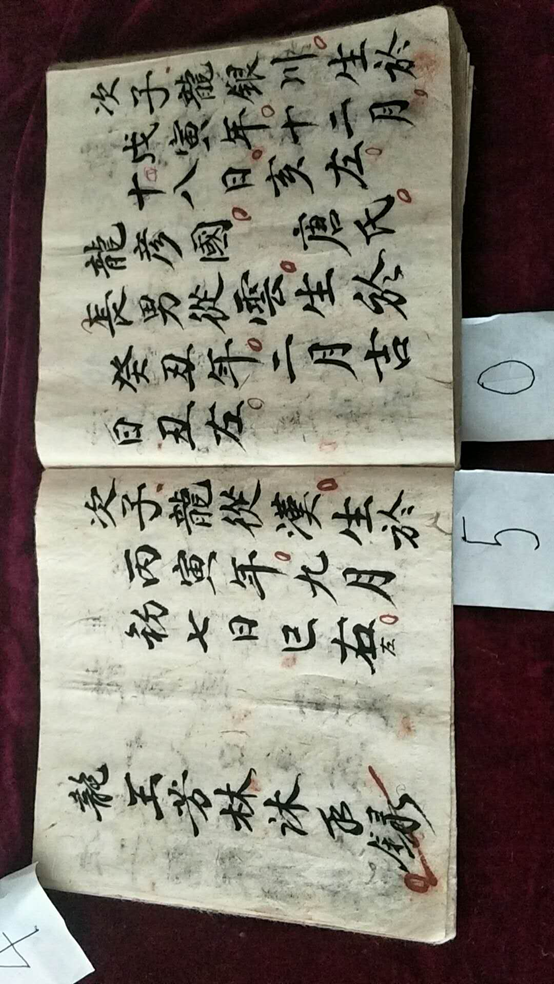 次子龍銀川生於
戊寅年十二月
十八日亥左
龍彦國 唐氏
長男從雲生於
癸丑年二月吉
日丑左
次子龍從漢生於
丙寅年九月
初七日巳右左
龍玉芳林沐手錄
0
5
4